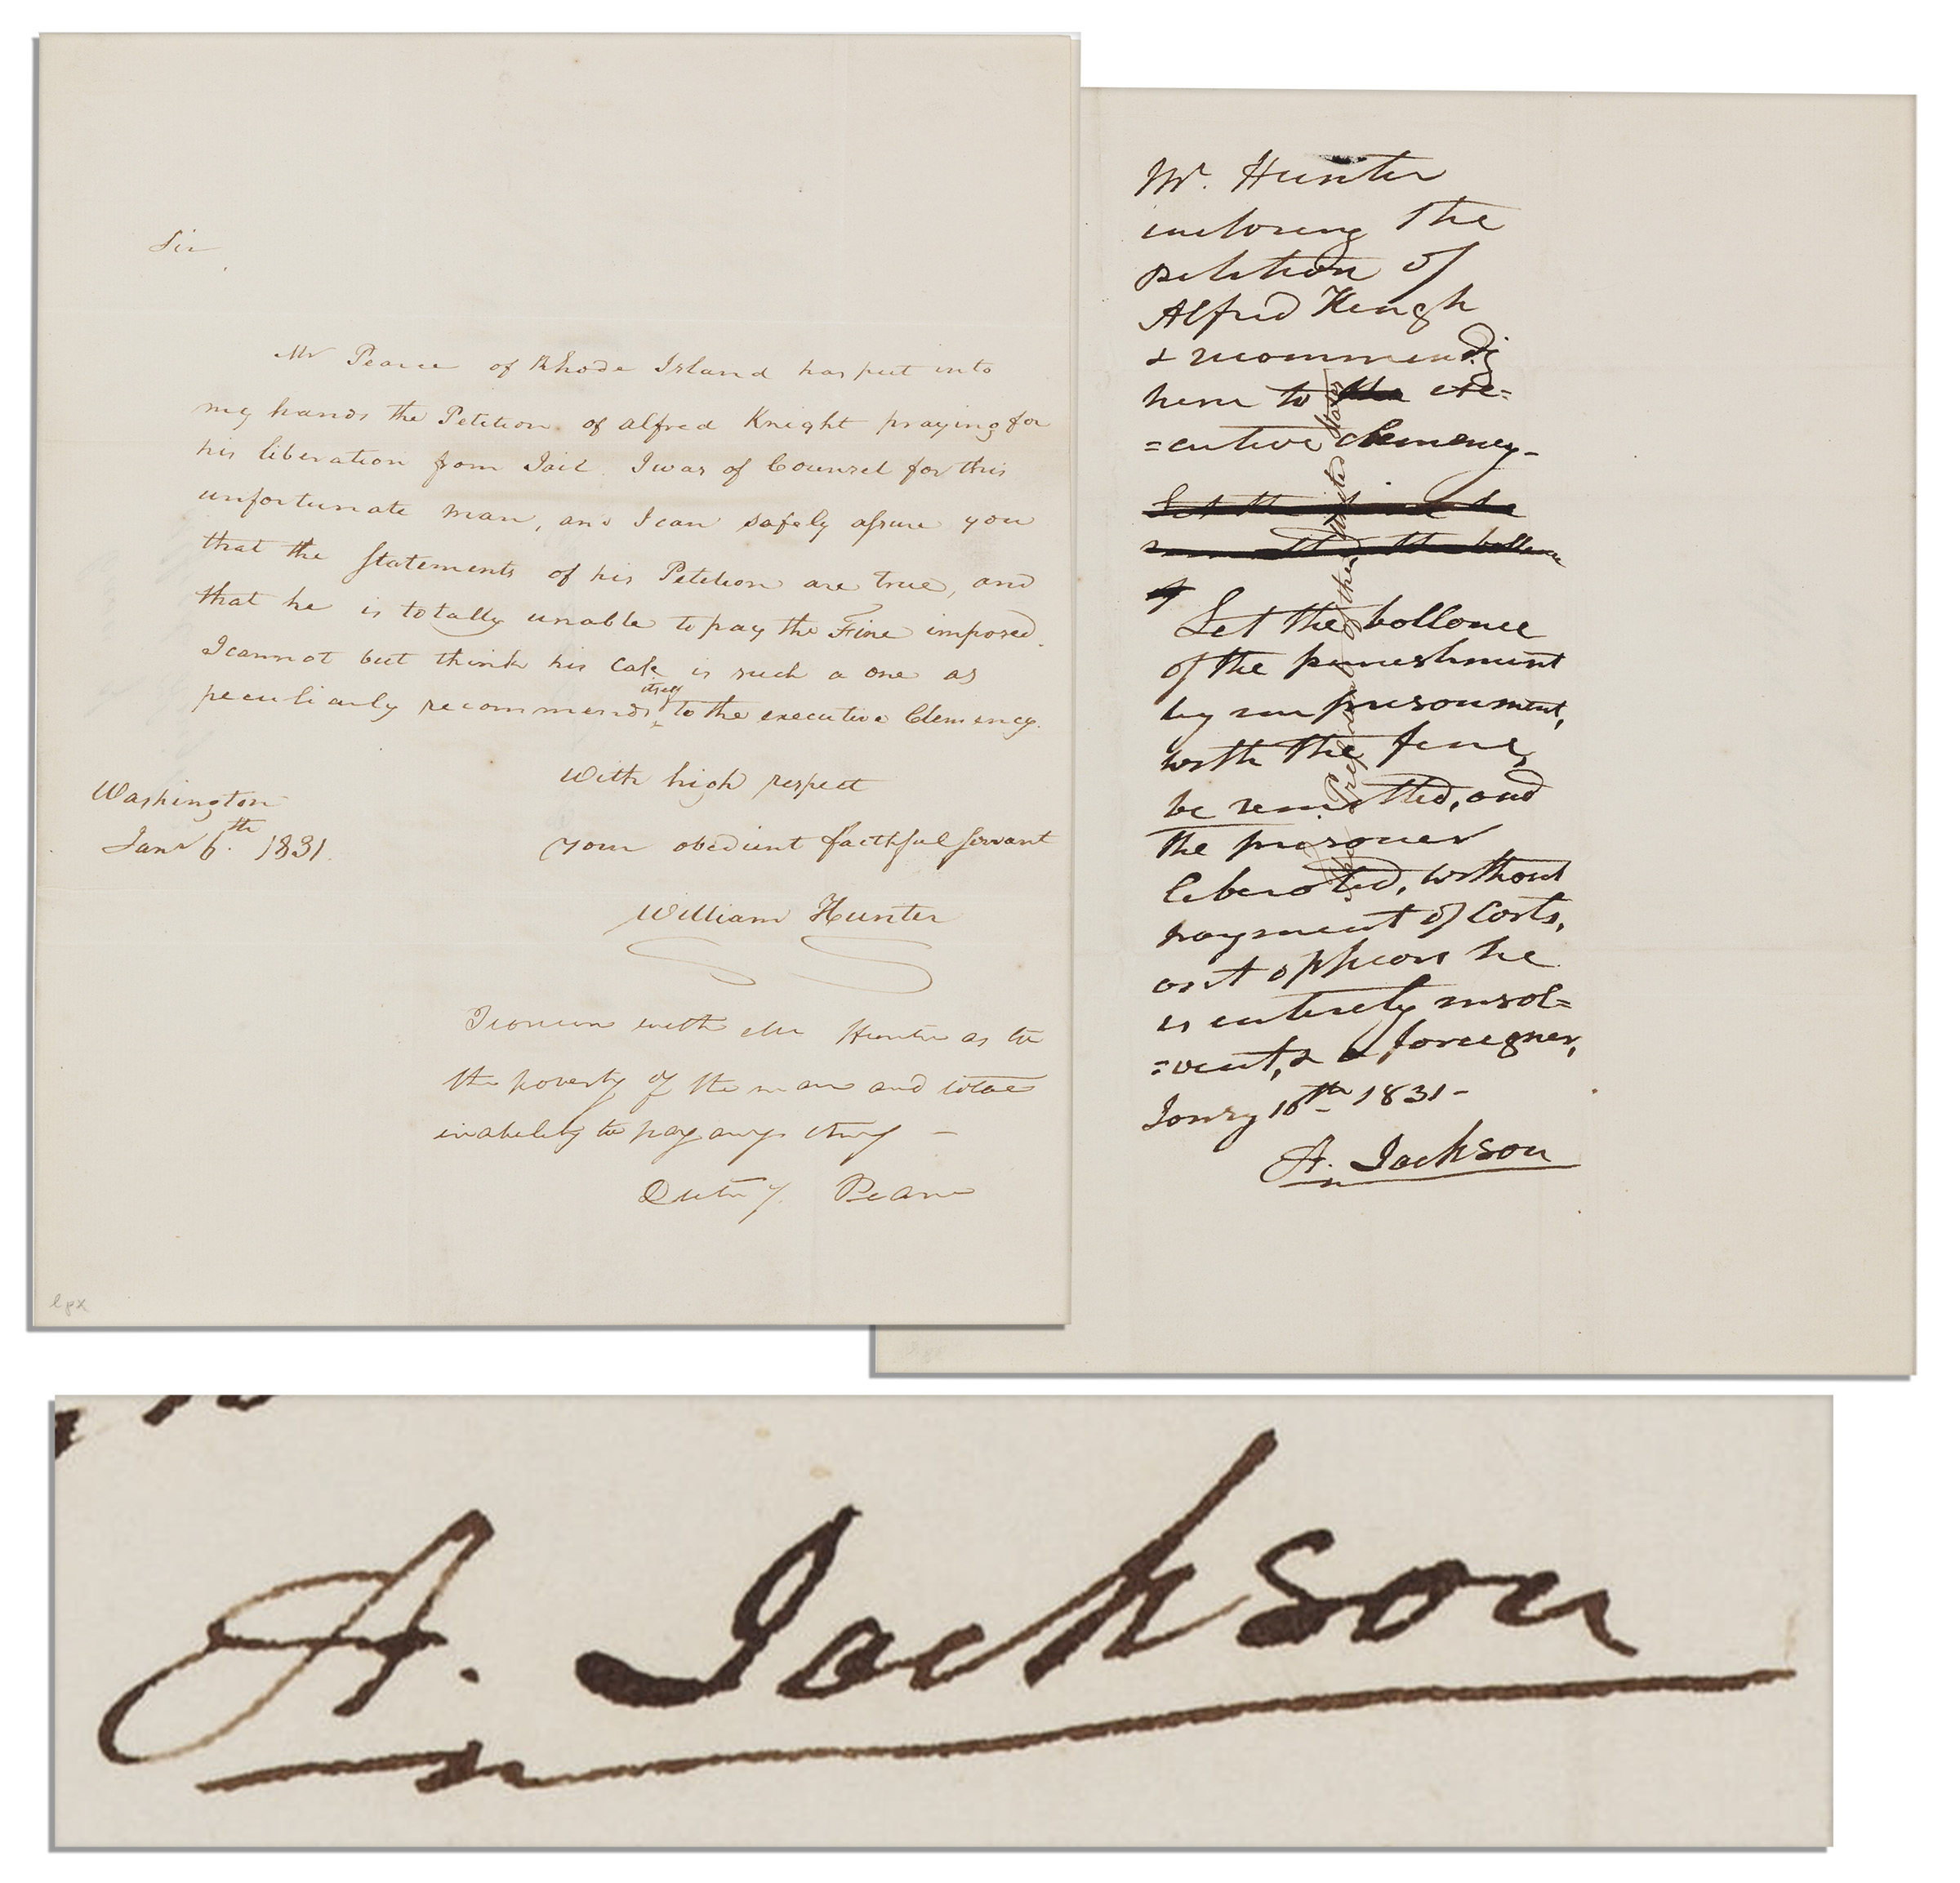 Sir,
Mr Pearce of Rhode Island has put into
my hands the Petition of Alfred Knight praying for
his liberation from Jail. I was of Counsel for this
unfortunate man, and I can safely assure you
that the Statements of his Petition are true, and
that he is totally unable to pay the Fine imposed.
I cannot but think his Case is such a one as
peculiarly recommends itself to the executive Clemency.
With high respect
your obedient faithful servant
William Hunter
Washington
Jany 6th 1831.
I concur with Mr Hunter as to
the poverty of the man and total
inability to pay any thing —
Dutee J. Pearce
lpx
Mr. Hunter
inclosing the
petition of
Alfred
& recommendg
him to the exe=
=cutive clemency—
Let the be
the ballance
of
Let the bollonce
of the punishment
by imprisonment,
with the fine,
be remitted, and
the prisoner
liberated, without
payment of Costs,
as it appears he
is entirely insol=
=vent, & a foreigner,
Jonry 10th 1831—
A. Jackson
The President of the United States
A. Jackson